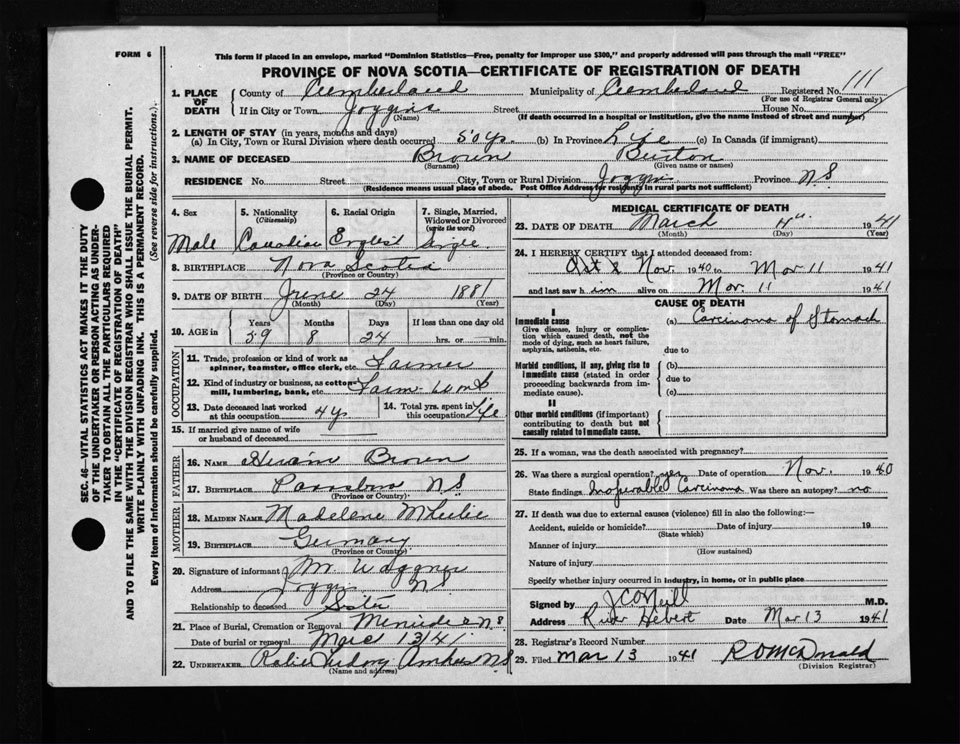 FORM 6
This form if placed in an envelope, marked "Dominion Statistics—Free, penalty for improper use $300," and properly addressed will pass through the mail "FREE"
PROVINCE OF NOVA SCOTIA—CERTIFICATE OF REGISTRATION OF DEATH
SEC. 46—VITAL STATISTICS ACT MAKES IT THE DUTY
OF THE UNDERTAKER OR PERSON ACTING AS UNDER-
TAKER TO OBTAIN ALL THE PARTICULARS REQUIRED
IN THE "CERTIFICATE OF REGISTRATION OF DEATH"
AND TO FILE THE SAME WITH THE DIVISION REGISTRAR WHO SHALL ISSUE THE BURIAL PERMIT.
WRITE PLAINLY WITH UNFADING INK. THIS IS A PERMANENT RECORD.
Every item of information should be carefully supplied. (See reverse side for instructions).
1. PLACE OF DEATH
County of Cumberland Municipality of Cumberland Registered No. 111
(For use of Registrar General only)
If in City or Town Joggins Street House No.
(Name) (If death occurred in a hospital or institution, give the name instead of street and number)
2. LENGTH OF STAY (in years, months and days)
(a) In City, Town or Rural Division where death occurred 50 yrs. (b) In Province Life (c) In Canada (if immigrant)
3. NAME OF DECEASED Brown Burton
(Surname) (Given name or names)
RESIDENCE No. Street City, Town or Rural Division Joggins Province N.S
(Residence means usual place of abode. Post Office Address for residents in rural parts not sufficient)
4. Sex 5. Nationality (Citizenship) 6. Racial Origin 7. Single, Married, Widowed or Divorced (write the word)
Male Canadian English Single
8. BIRTHPLACE Nova Scotia
(Province or Country)
9. DATE OF BIRTH June 24 1881
(Month) (Day) (Year)
10. AGE in Years Months Days If less than one day old
59 8 24 hrs. or min.
OCCUPATION
11. Trade, profession or kind of work as spinner, teamster, office clerk, etc. Farmer
12. Kind of industry or business, as cotton mill, lumbering, bank, etc. Farm Work
13. Date deceased last worked at this occupation 4 ys 14. Total yrs. spent in this occupation life
15. If married give name of wife or husband of deceased
FATHER
16. NAME Hiram Brown
17. BIRTHPLACE Parrsboro N.S
(Province or Country)
MOTHER
18. MAIDEN NAME Madelene
19. BIRTHPLACE Germany
(Province or Country)
20. Signature of informant
Address Joggins N.S
Relationship to deceased Sister
21. Place of Burial, Cremation or Removal Minudie N.S
Date of burial or removal March 13/41
22. UNDERTAKER Amherst N.S
(Name and address)
MEDICAL CERTIFICATE OF DEATH
23. DATE OF DEATH March 1941
(Month) (Day) (Year)
24. I HEREBY CERTIFY that I attended deceased from:
Nov. 1940 to Mar 11 1941
and last saw him alive on Mar. 11 1941
CAUSE OF DEATH
I
Immediate cause
Give disease, injury or complication which caused death, not the mode of dying, such as heart failure, asphyxia, asthenia, etc.
(a) Carcinoma of Stomach
due to
Morbid conditions, if any, giving rise to immediate cause (stated in order proceeding backwards from immediate cause).
(b)
due to
(c)
II
Other morbid conditions (if important) contributing to death but not causally related to immediate cause.
25. If a woman, was the death associated with pregnancy?
26. Was there a surgical operation? yes Date of operation Nov. 1940
State findings Inoperable Carcinoma Was there an autopsy? no
27. If death was due to external causes (violence) fill in also the following:—
Accident, suicide or homicide? Date of injury 19
(State which)
Manner of injury
(How sustained)
Nature of injury
Specify whether injury occurred in industry, in home, or in public place
Signed by M.D.
Address River Hebert Date Mar 13 1941
28. Registrar's Record Number
29. Filed Mar 13 1941 R O McDonald
(Division Registrar)